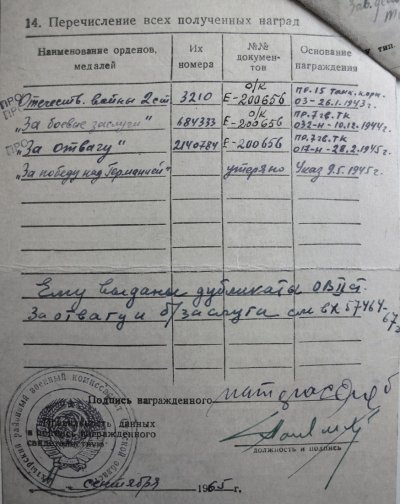 14. Перечисление всех полученных наград
Наименование орденов, медалей
Их номера
№№ документов
Основание награждения
Отечеств. войны 2 ст
3210
о/к Е-200656
пр. 15 танк. корп. 03-26.1.1943 г.
"За боевые заслуги"
684333
о/к Е-200656
пр. 7 гв. ТК 032-н - 10.12.1944 г.
"За отвагу"
2140784
Е-200656
пр. 7 гв. ТК 017-н - 28.2.1945 г.
"За победу над Германией"
утеряно
Указ 9.5.1945 г.
Ему выданы дубликаты ОВ II ст.
За отвагу и б/заслуги см вх 57464-
Подпись награжденного
Правильность данных
и подпись награжденного
свидетельствую:
должность и подпись
сентября 1965 г.